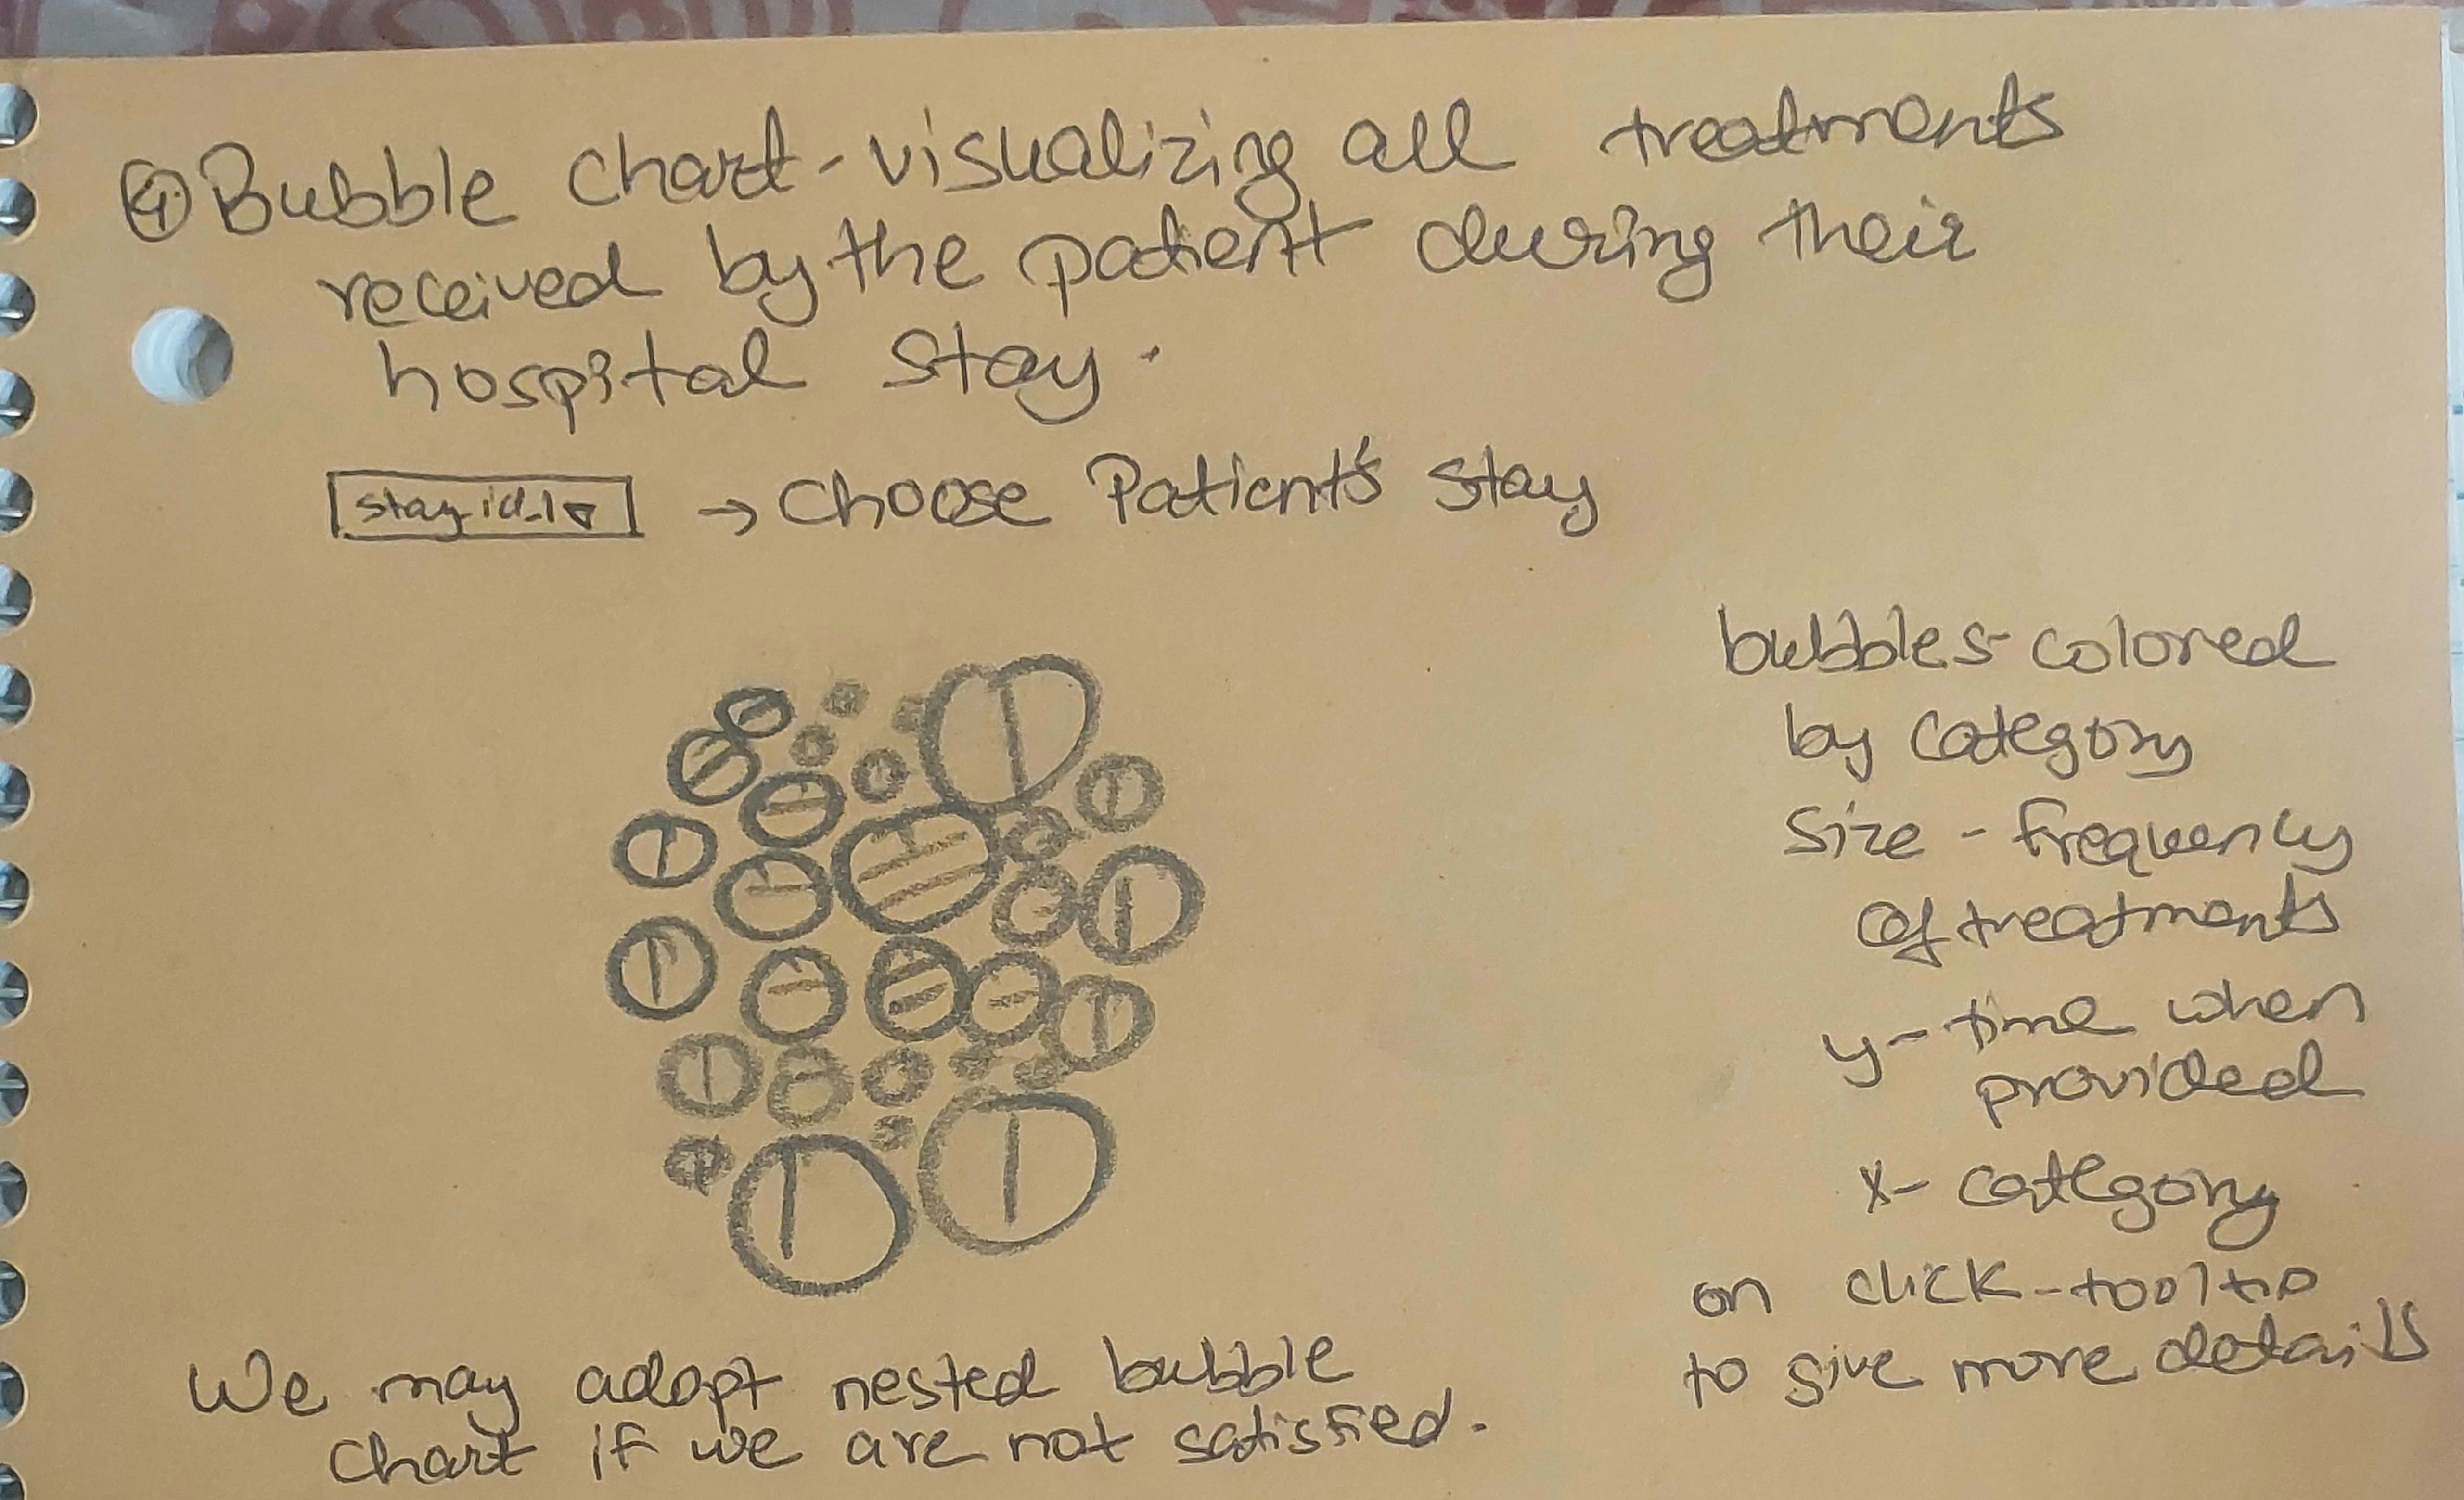 ④ Bubble chart - visualizing all treatments
received by the patient during their
hospital stay.
stay_id_1 ▾ → Choose Patient's stay
bubbles - colored
by category
size - frequency
of treatments
y - time when
provided
x - category
on click - tooltip
to give more details
We may adopt nested bubble
chart if we are not satisfied.